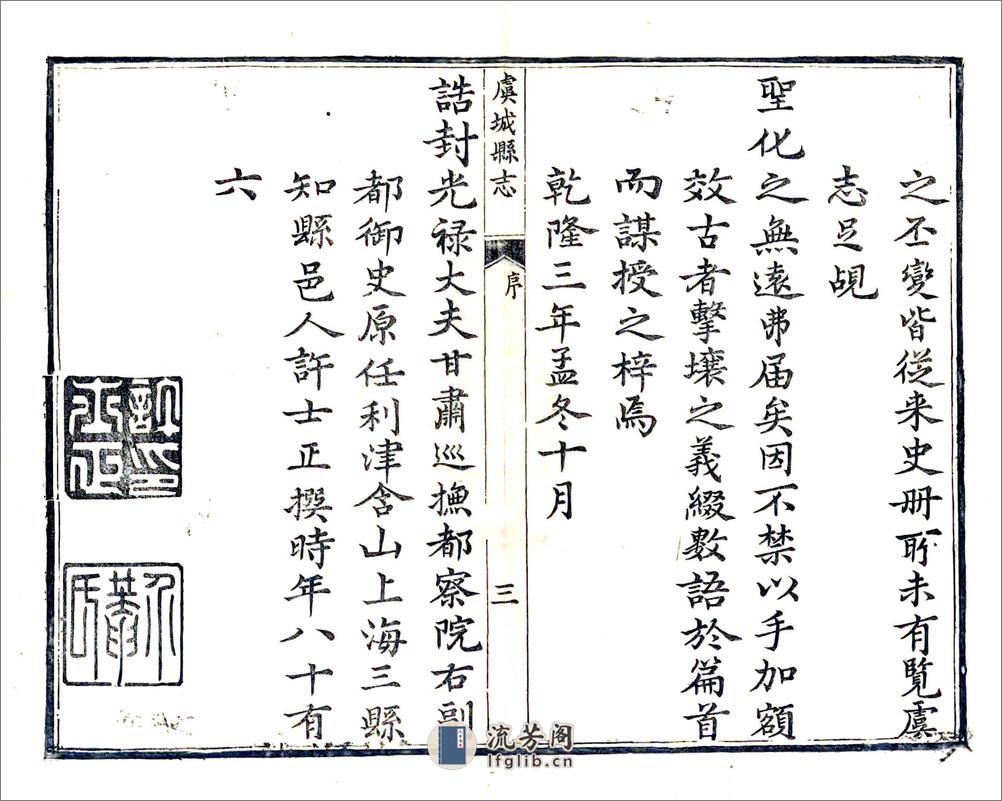 之丕變皆從来史册所未有覽虞
志足覘
聖化之無遠弗届矣因不禁以手加額
效古者擊壤之義綴數語於篇首
而謀授之梓焉
乾隆三年孟冬十月
虞城縣志
序
三
誥封光禄大夫甘肅巡撫都察院右副
都御史原任利津含山上海三縣
知縣邑人許士正撰時年八十有
六
流芳阁
lfglib.cn